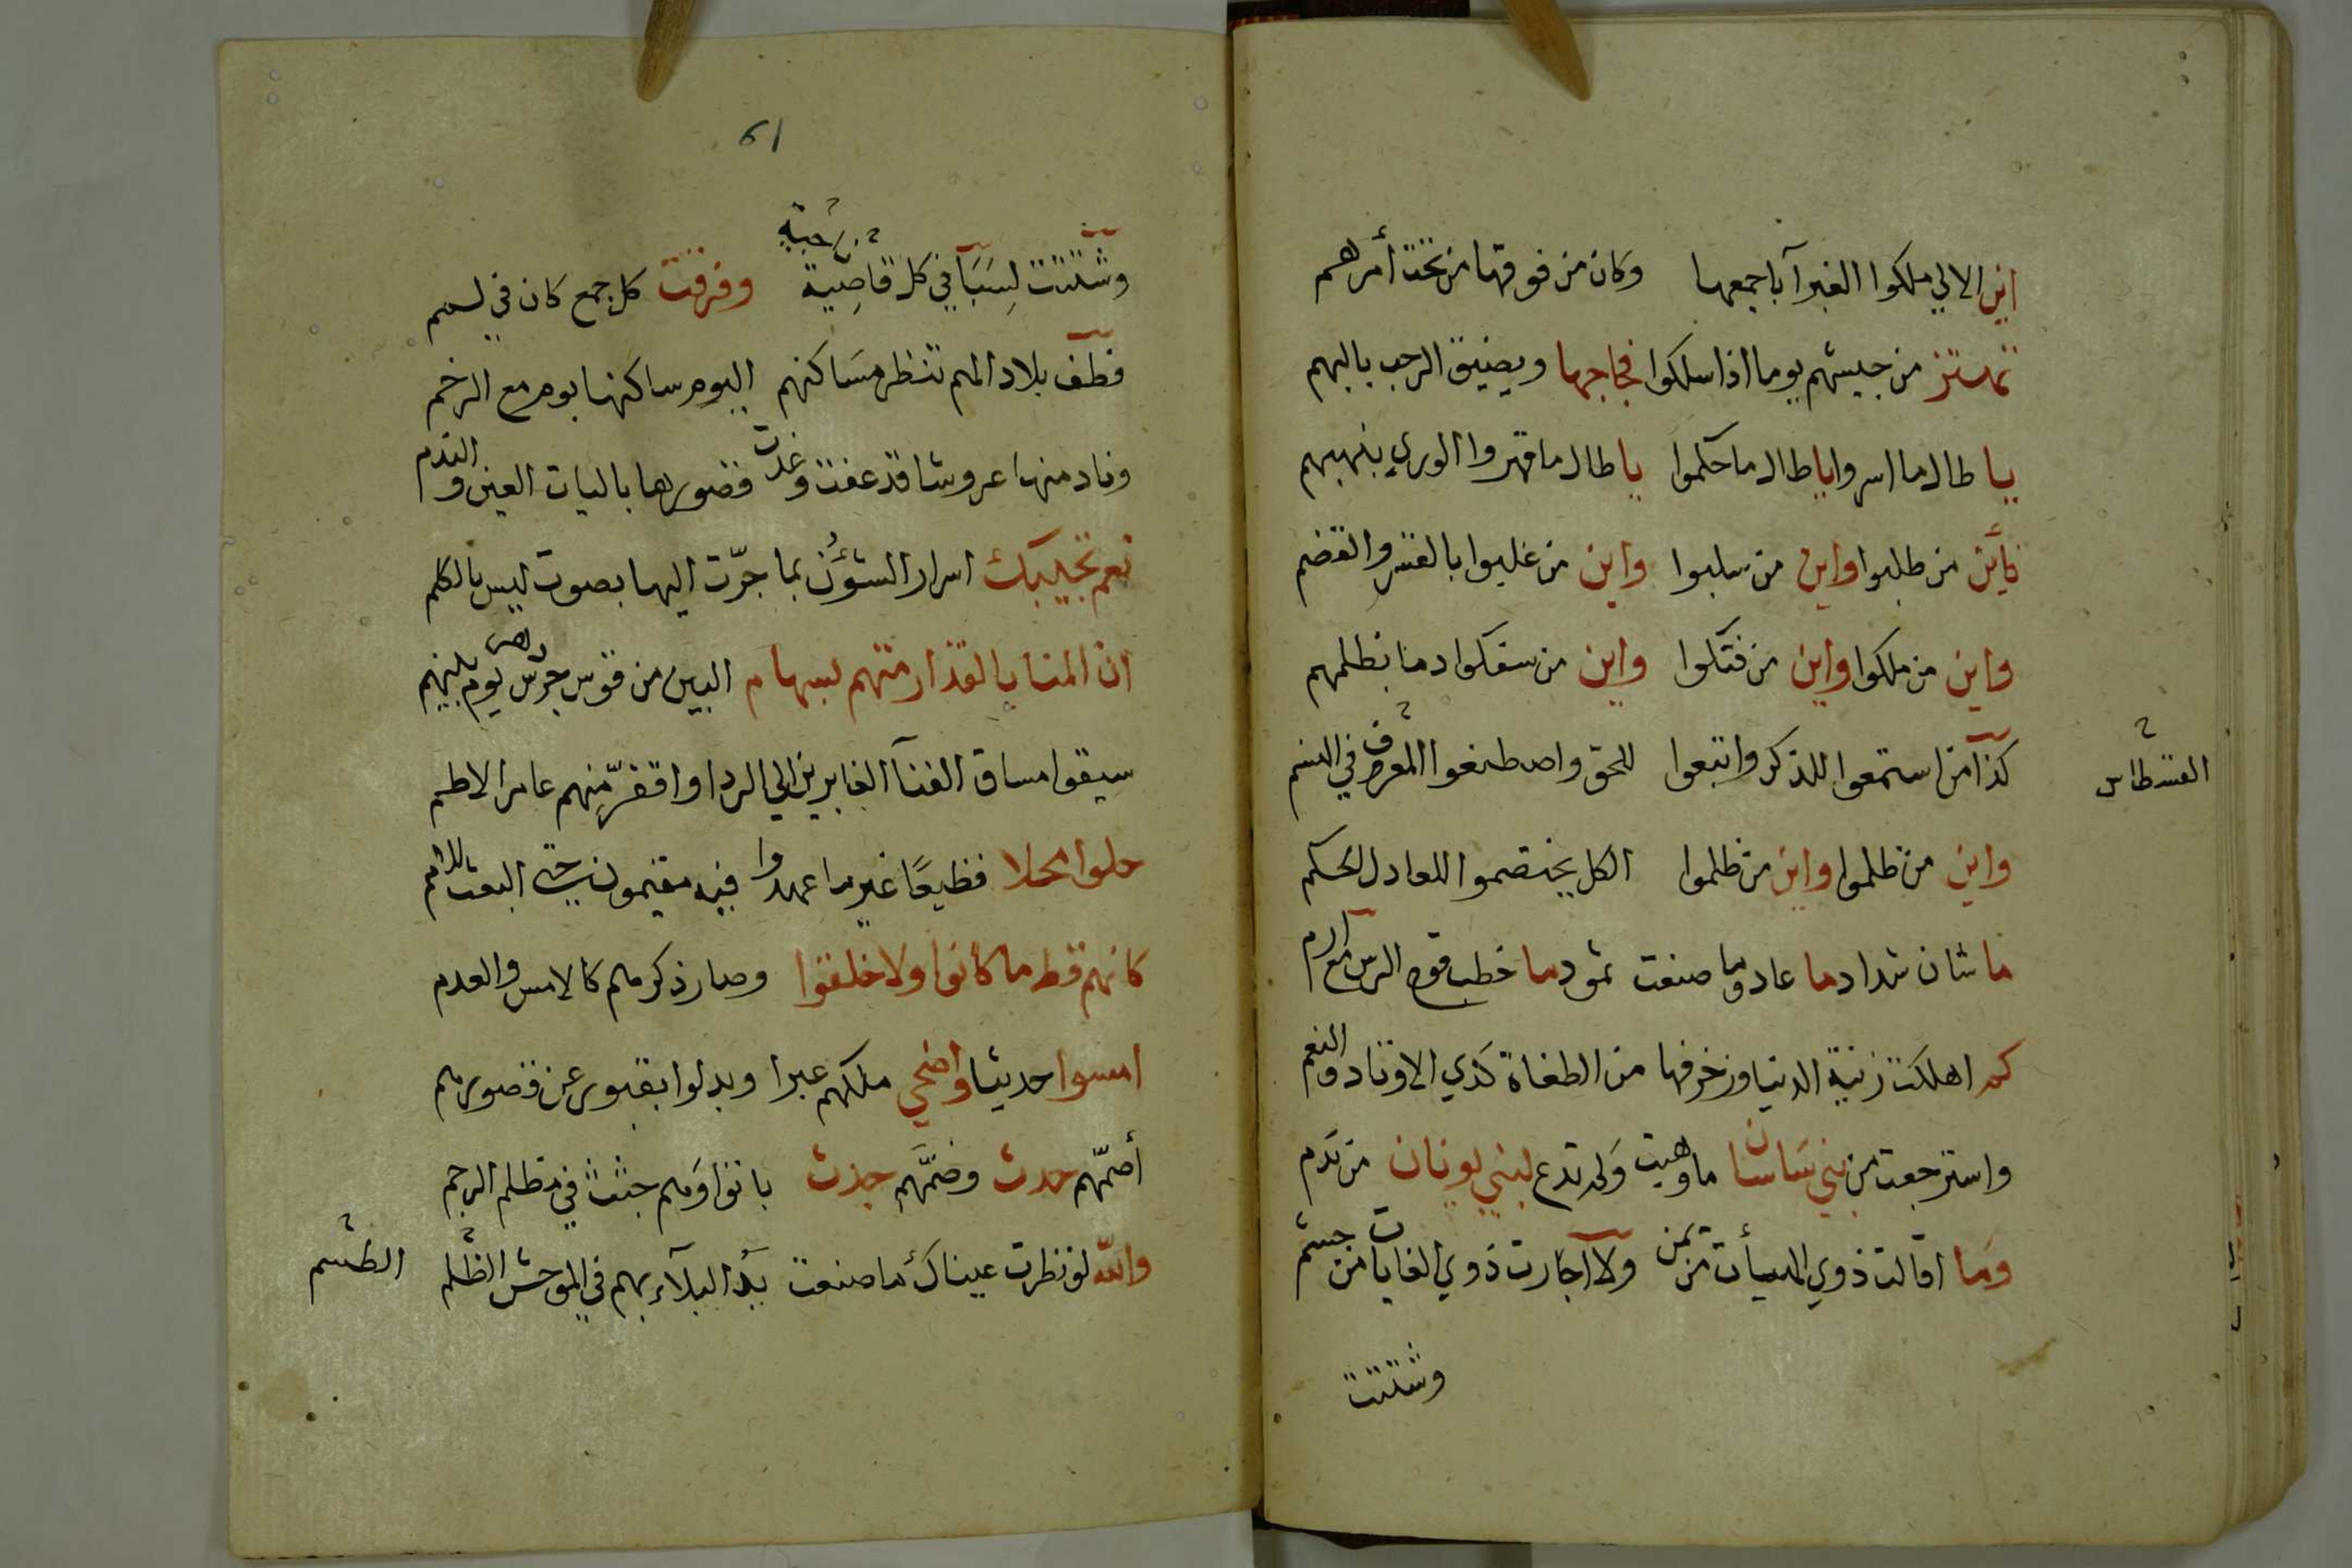 اين الالي ملكوا الغبرآ باجمعها وكان من فوقها من تحت أمرهم
تهتز من جيشهم يوما اذا سلكوا فجاجها ويضيق الرحب بالبهم
يا طالما اسروا يا طالما حكموا يا طالما قهروا الوري بنهبهم
فأين من طلبوا واين من سلبوا واين من غلبوا بالقسر والقضم
واين من ملكوا واين من فتكوا واين من سفكوا دما بظلمهم
كذا من استمعوا للذكر واتبعوا للحق واصطنعوا المعروف في النسم
القسطاس
واين من ظلموا واين من ظلموا الكل يختصموا للعادل الحكم
ما شان شداد ما عاد وما صنعت ثمود ما خطب قوم الرس مع ارم
كم اهلكت زينة الدنيا وزخرفها من الطغاة كذي الاوتاد والنعم
واسترجعت من بني ساسان ما وهبت ولم تدع لبني يونان من نَدم
وما اقالت ذوي الهيأت من يمن ولا آجارت ذوي الغايات من جشم
وشتتت
61
وشتتت لِسَبَآ في كل قاصِية وفرقت كل جمع كان في لسم
فطف بلادالهم تنظر مسَاكنهم اليوم ساكنها بوم مع الرخم
وناد منها عروشا قد عفت وغدت قصورها باليات العين والندم
نعم تجيبك اسرار الشؤن بما جرّت اليها بصوت ليس بالكلم
ان المنايا القذا رمتهم بسهام البين من قوس جرس يوم بينهم
سيقوا مساق الفنآ الغابرين الي الردا واقفرّ منهم عامر الاطم
حلوا محلا فظيعًا غير ما عهدوا فيه مقيمون حتي البعث للامم
كانهم قط ما كانوا ولا خلقوا وصار ذكرهم كالامس والعدم
امسوا حديثا واضحي ملكهم عبرا وبدلوا بقبور عن قصورهم
أصمّهم حدث وضمَّهم جدث باتوا وَهم جثث في مظلم الرجم
والله لو نظرت عيناكَ ما صنعت يدُ البلآء بهم في الموحش الظلم
الطسم